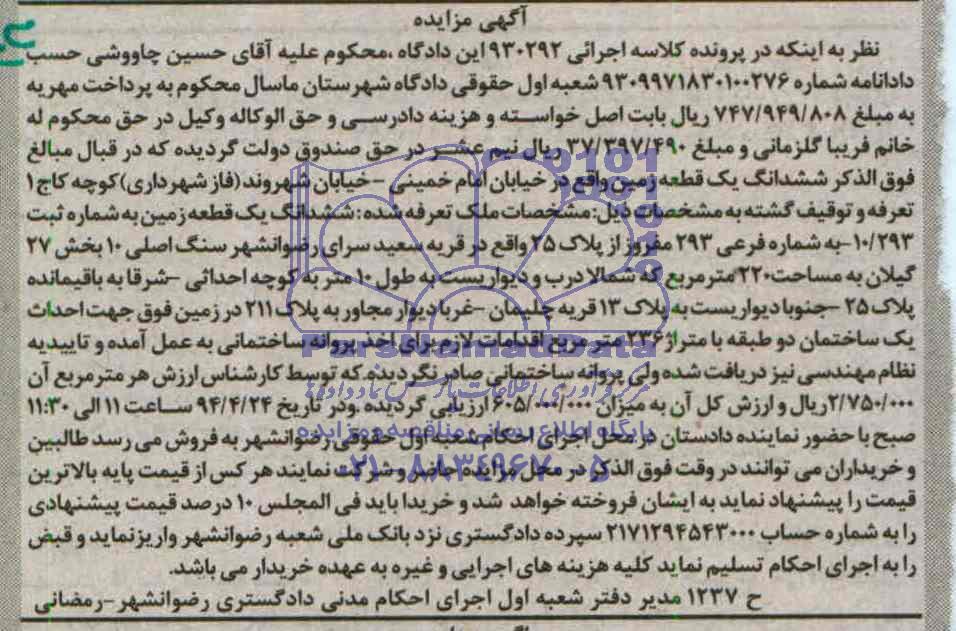 آگهی مزایده
نظر به اینکه در پرونده کلاسه اجرائی ۹۳۰۲۹۲ این دادگاه ،محکوم علیه آقای حسین چاووشی حسب
دادانامه شماره ۹۳۰۹۹۷۱۸۳۰۱۰۰۲۷۶ شعبه اول حقوقی دادگاه شهرستان ماسال محکوم به پرداخت مهریه
به مبلغ ۷۴۷/۹۴۹/۸۰۸ ریال بابت اصل خواسته و هزینه دادرسی و حق الوکاله وکیل در حق محکوم له
خانم فریبا گلزمانی و مبلغ ۳۷/۳۹۷/۴۹۰ ریال نیم عشر در حق صندوق دولت گردیده که در قبال مبالغ
فوق الذکر ششدانگ یک قطعه زمین واقع در خیابان امام خمینی -خیابان شهروند(فاز شهرداری)کوچه کاج۱
تعرفه و توقیف گشته به مشخصات ذیل: مشخصات ملک تعرفه شده: ششدانگ یک قطعه زمین به شماره ثبت
۱۰/۲۹۳-به شماره فرعی ۲۹۳ مفروز از پلاک ۲۵ واقع در قریه سعید سرای رضوانشهر سنگ اصلی ۱۰ بخش ۲۷
گیلان به مساحت۲۲۰ مترمربع که شمالا درب و دیواریست به طول ۱۰ متر به کوچه احداثی -شرقا به باقیمانده
پلاک ۲۵ -جنوبا دیواریست به پلاک ۱۳ قریه چلیمان -غربا دیوار مجاور به پلاک ۲۱۱ در زمین فوق جهت احداث
یک ساختمان دو طبقه با متراژ ۲۳۶ متر مربع اقدامات لازم برای اخذ پروانه ساختمانی به عمل آمده و تاییدیه
نظام مهندسی نیز دریافت شده ولی پروانه ساختمانی صادر نگردیده که توسط کارشناس ارزش هر مترمربع آن
۲/۷۵۰/۰۰۰ریال و ارزش کل آن به میزان ۶۰۵/۰۰۰/۰۰۰ ارزیابی گردیده .ودر تاریخ ۹۴/۴/۲۴ ساعت ۱۱ الی ۱۱:۳۰
صبح با حضور نماینده دادستان در محل اجرای احکام شعبه اول حقوقی رضوانشهر به فروش می رسد طالبین
و خریداران می توانند در وقت فوق الذکر در محل مزایده حاضر و شرکت نمایند هر کس از قیمت پایه بالاترین
قیمت را پیشنهاد نماید به ایشان فروخته خواهد شد و خریدا باید فی المجلس ۱۰ درصد قیمت پیشنهادی
را به شماره حساب ۲۱۷۱۲۹۴۵۴۳۰۰۰ سپرده دادگستری نزد بانک ملی شعبه رضوانشهر واریز نماید و قبض
را به اجرای احکام تسلیم نماید کلیه هزینه های اجرایی و غیره به عهده خریدار می باشد.
ح ۱۲۳۷ مدیر دفتر شعبه اول اجرای احکام مدنی دادگستری رضوانشهر-رمضانی